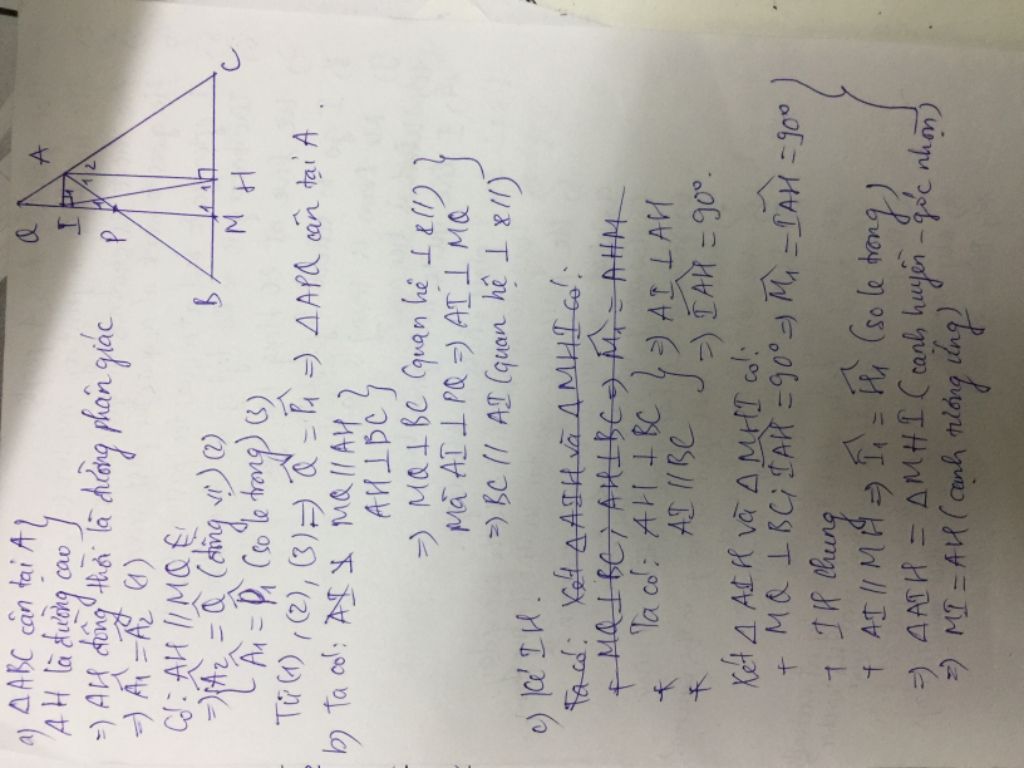 Q
A
I
1
2
P
1
1
1
B
M
H
C
a) ΔABC cân tại A }
AH là đường cao }
=> AH đồng thời là đường phân giác
=> Â1 = Â2 (1)
Có: AH // MQ
=> { Â2 = Q̂ (đồng vị) (2)
Â1 = P̂1 (so le trong) (3)
Từ (1), (2), (3) => Q̂ = P̂1 => ΔAPQ cân tại A.
b) Ta có: MQ // AH }
AH ⊥ BC }
=> MQ ⊥ BC (quan hệ ⊥ & //) }
Mà AI ⊥ PQ => AI ⊥ MQ }
=> BC // AI (quan hệ ⊥ & //)
c) Kẻ IH.
Ta có: Xét ΔAIH và ΔMHI có:
+ MQ ⊥ BC, AH ⊥ BC => M̂1 = AHM
* Ta có: AH ⊥ BC } => AI ⊥ AH
* AI // BC } => IAH = 90°.
Xét Δ AIH và Δ MHI có:
+ MQ ⊥ BC; IAH = 90° => M̂1 = IAH = 90° }
+ IH chung }
+ AI // MH => Î1 = Ĥ1 (so le trong) }
=> ΔAIH = ΔMHI (cạnh huyền - góc nhọn)
=> MI = AH (cạnh tương ứng)